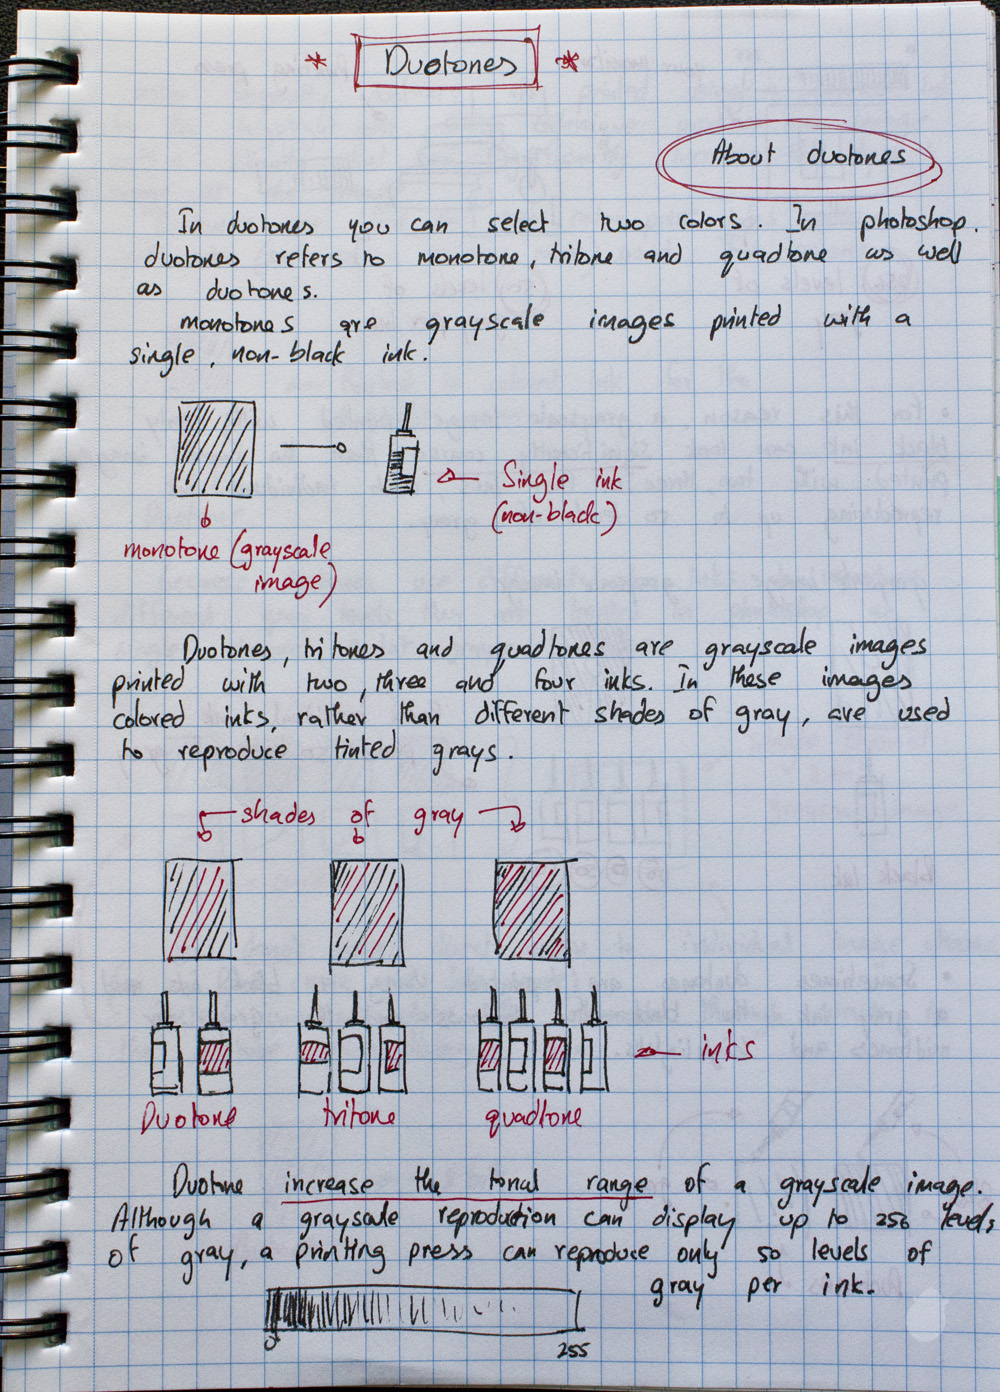 * Duotones *
About duotones
In duotones you can select two colors. In photoshop.
duotones refers to monotone, tritone and quadtone as well
as duotones.
monotones are grayscale images printed with a
single, non-black ink.
Single ink
(non-black)
monotone (grayscale
image)
Duotones, tritones and quadtones are grayscale images
printed with two, three and four inks. In these images
colored inks, rather than different shades of gray, are used
to reproduce tinted grays.
shades of gray
inks
Duotone tritone quadtone
Duotone increase the tonal range of a grayscale image.
Although a grayscale reproduction can display up to 256 levels
of gray, a printing press can reproduce only 50 levels of
gray per ink.
0 255